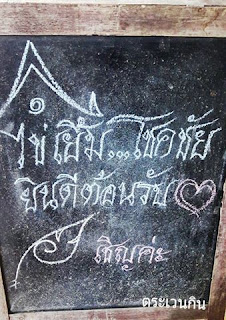 ไข่เยี่ยม...โชคชัย
ยินดีต้อนรับ
เชิญค่ะ
ตระเวนกิน